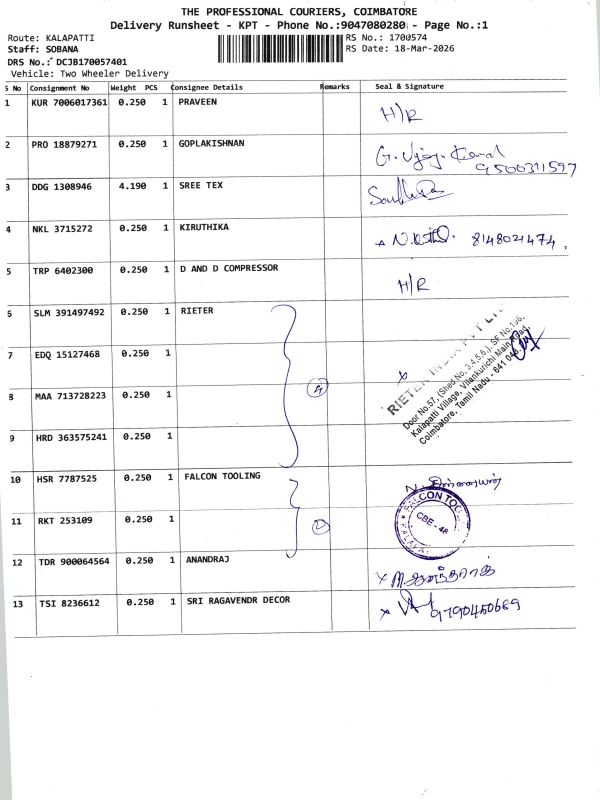 THE PROFESSIONAL COURIERS, COIMBATORE
Delivery Runsheet - KPT - Phone No.:9047080280 - Page No.:1
Route: KALAPATTI
RS No.: 1700574
Staff: SOBANA
RS Date: 18-Mar-2026
DRS No.: DCJB170057401
Vehicle: Two Wheeler Delivery
S No Consignment No Weight PCS Consignee Details Remarks Seal & Signature
1 KUR 7006017361 0.250 1 PRAVEEN H/R
2 PRO 18879271 0.250 1 GOPLAKISHNAN G. Vijay 9500311597
3 DDG 1308946 4.190 1 SREE TEX
4 NKL 3715272 0.250 1 KIRUTHIKA 8148021474,
5 TRP 6402300 0.250 1 D AND D COMPRESSOR H/R
6 SLM 391497492 0.250 1 RIETER
7 EDQ 15127468 0.250 1 x
8 MAA 713728223 0.250 1 4
9 HRD 363575241 0.250 1
RIETER INDIA PVT LTD
Door No.57, (Shed No. 3,4,5,6,), SF No.196,
Kalapatti Village, Vilankurichi Main Road,
Coimbatore, Tamil Nadu - 641 048.
10 HSR 7787525 0.250 1 FALCON TOOLING
11 RKT 253109 0.250 1
FALCON TOO
CBE - 48
12 TDR 900064564 0.250 1 ANANDRAJ x M. ஆனந்தராஜ்
13 TSI 8236612 0.250 1 SRI RAGAVENDR DECOR x 9790450669